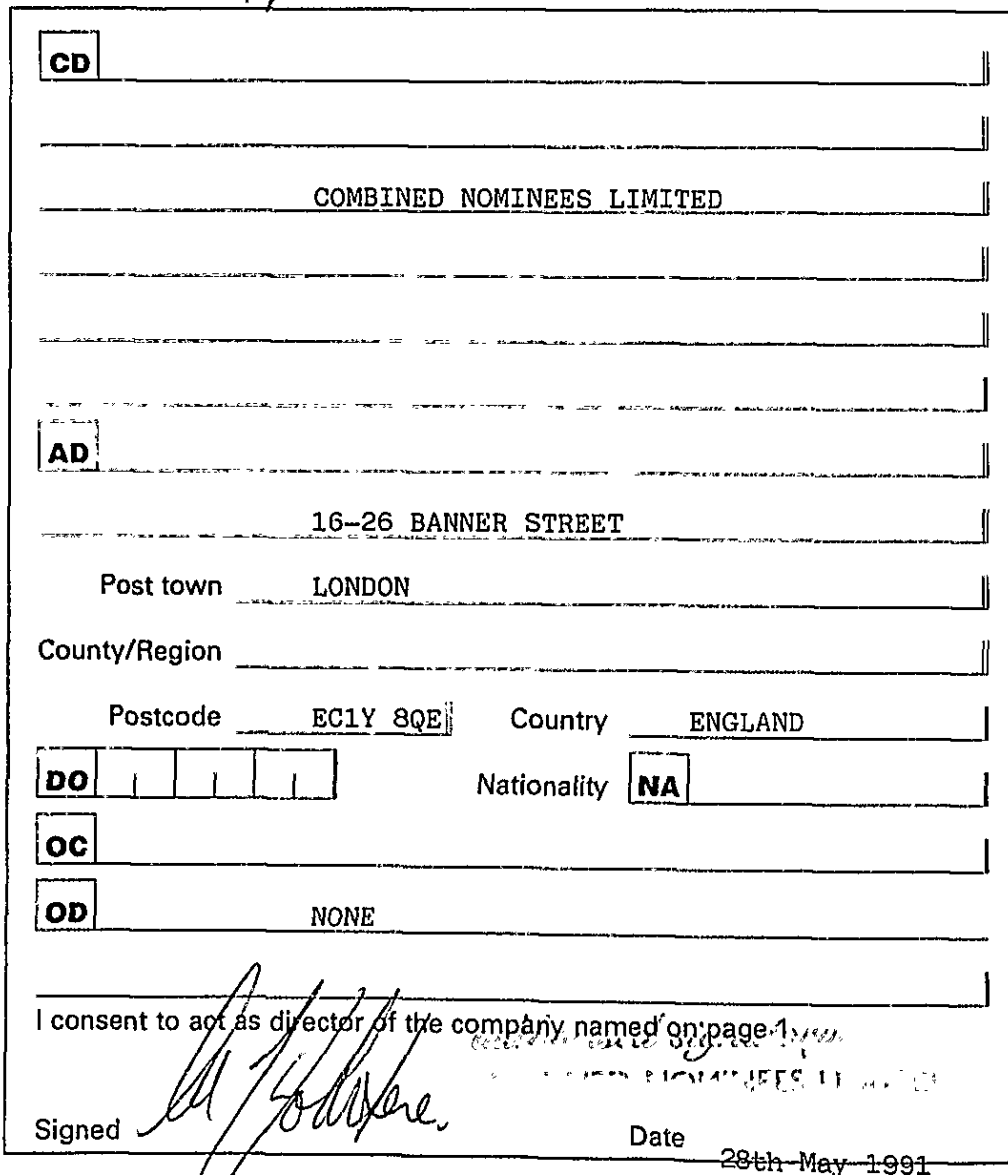 CD
COMBINED NOMINEES LIMITED
AD
16-26 BANNER STREET
Post town LONDON
County/Region
Postcode EC1Y 8QE Country ENGLAND
DO Nationality NA
OC
OD NONE
I consent to act as director of the company named on page 1.
NOMINEES
Signed Date 28th May 1991